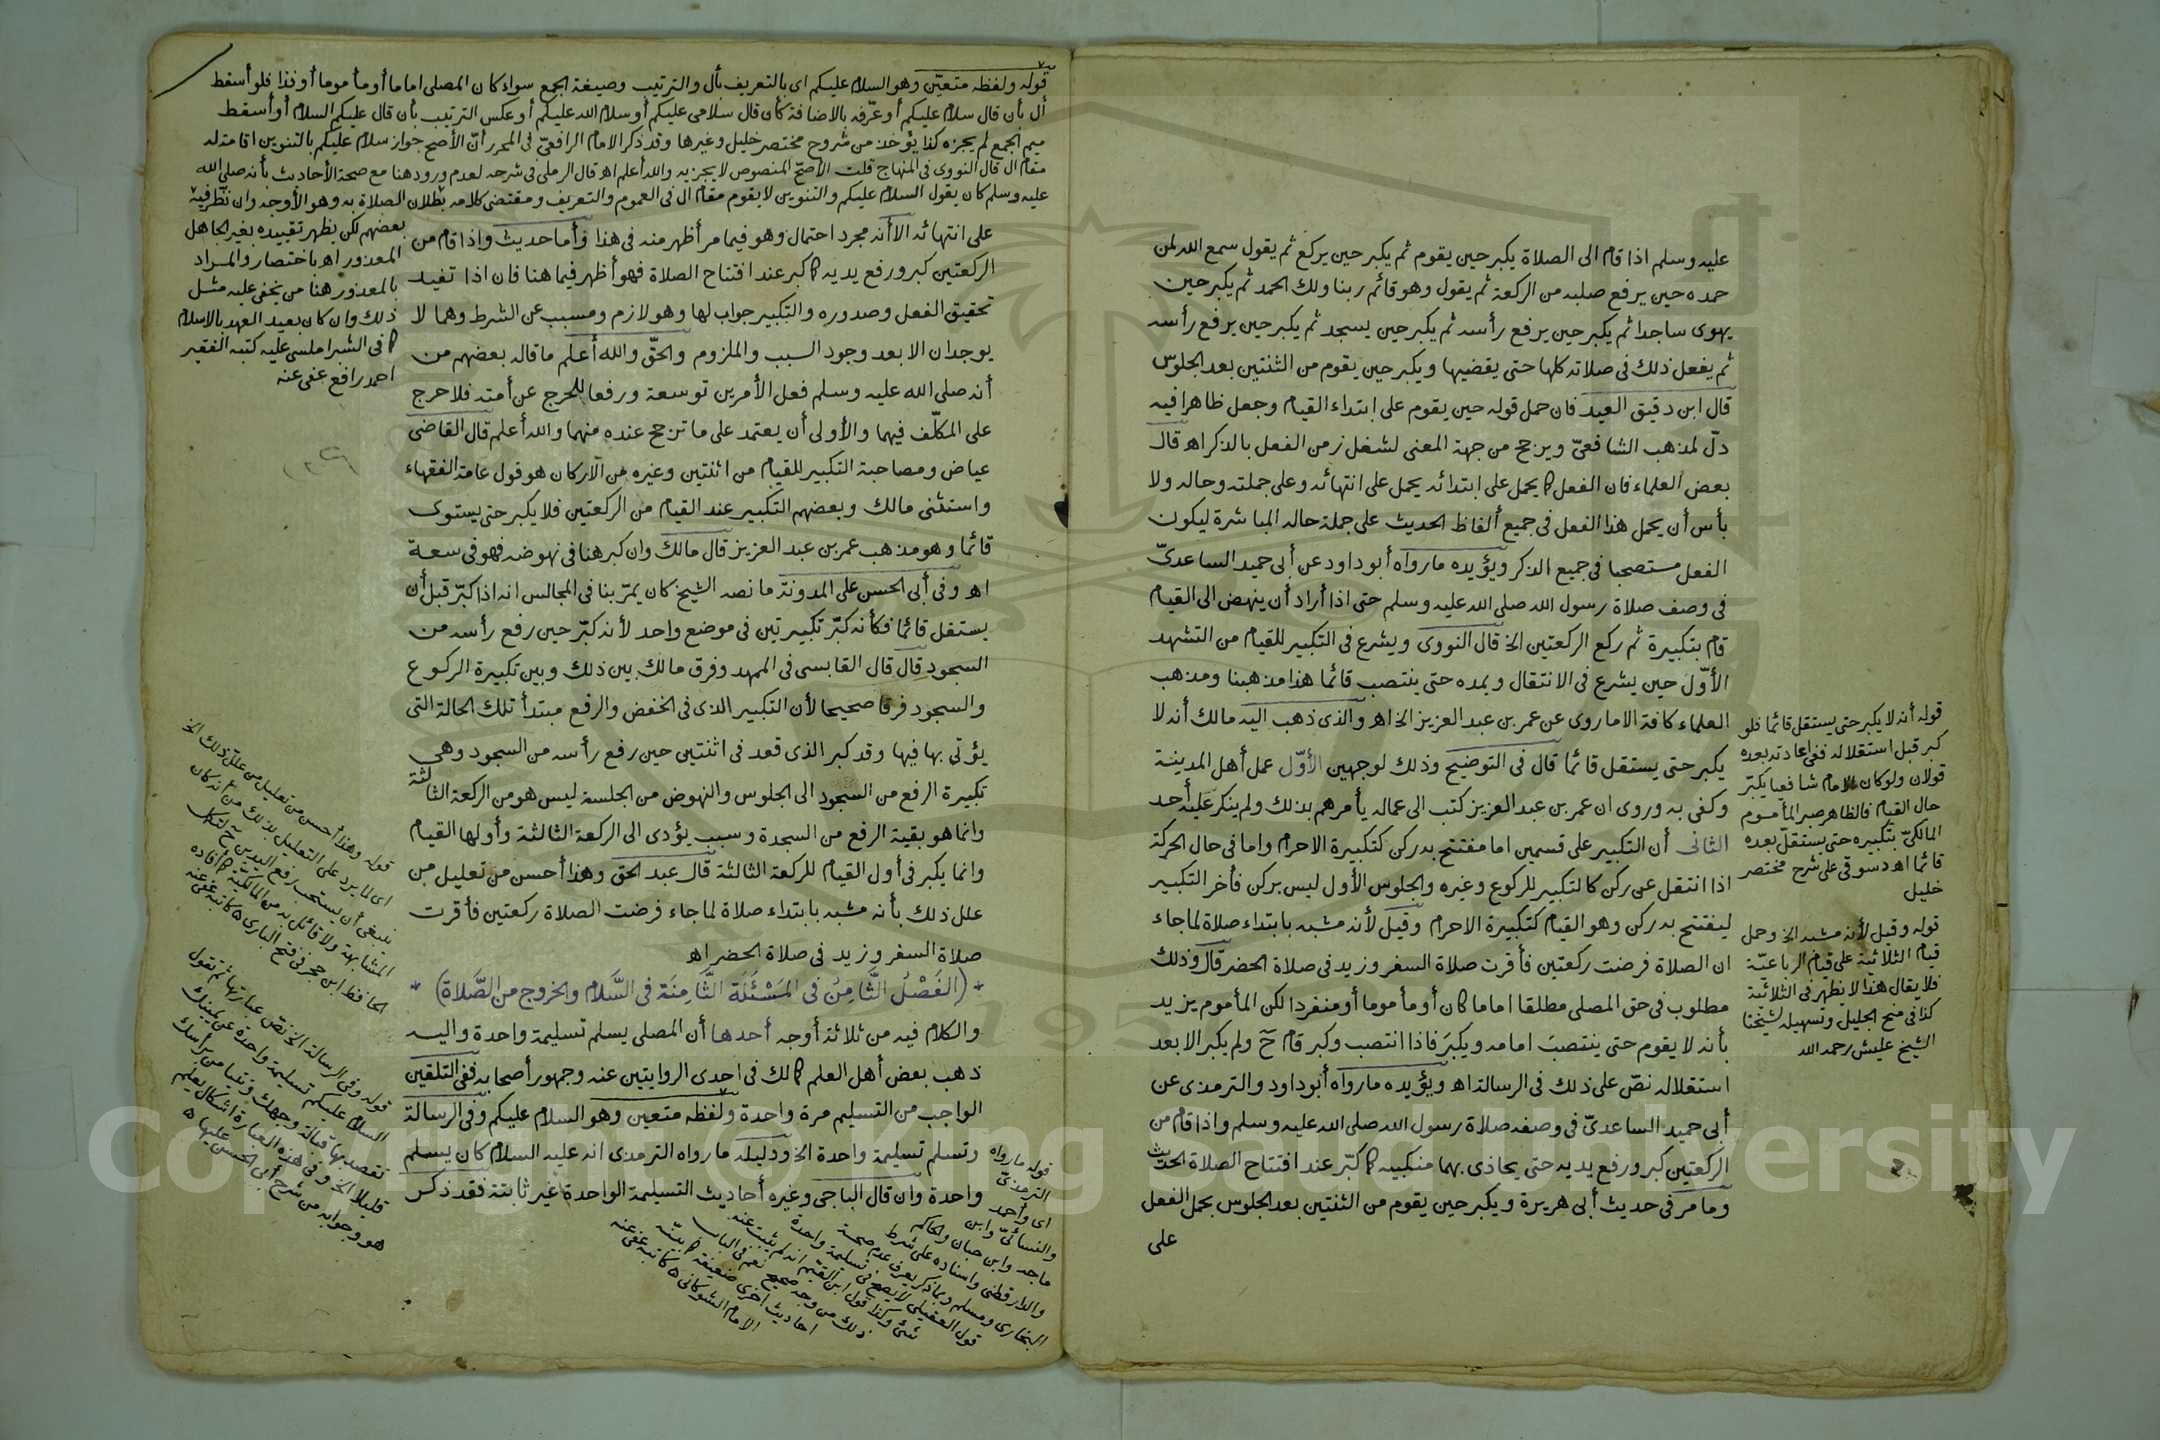 عليه وسلم اذا قام الى الصلاة يكبر حين يقوم ثم يكبر حين يركع ثم يقول سمع الله لمن
حمده حين يرفع صلبه من الركعة ثم يقول وهو قائم ربنا ولك الحمد ثم يكبر حين
يهوى ساجدا ثم يكبر حين يرفع رأسه ثم يكبر حين يسجد ثم يكبر حين يرفع رأسه
ثم يفعل ذلك فى صلاته كلها حتى يقضيها ويكبر حين يقوم من الثنتين بعد الجلوس
قال ابن دقيق العيد فان حمل قوله حين يقوم على ابتداء القيام وجعل ظاهرا فيه
دلّ لمذهب الشافعىّ ويرجح من جهة المعنى لشغل زمن الفعل بالذكر اه قال
بعض العلماء فان الفعل كما يحمل على ابتدائه يحمل على انتهائه وعلى جملته وحاله ولا
بأس أن يحمل هذا الفعل فى جميع ألفاظ الحديث على جملة حاله المباشرة ليكون
الفعل مستصحبا فى جميع الذكر ويؤيده مارواه أبوداود عن أبى حميد الساعدىّ
فى وصف صلاة رسول الله صلى الله عليه وسلم حتى اذا أراد أن ينهض الى القيام
قام بتكبيرة ثم ركع الركعتين الخ قال النووى ويشرع فى التكبير للقيام من التشهد
الأوّل حين يشرع فى الانتقال ويمده حتى ينتصب قائما هذا مذهبنا ومذهب
العلماء كافة الا ماروى عن عمر بن عبد العزيز الخ اه والذى ذهب اليه مالك أنه لا
يكبر حتى يستقل قائما قال فى التوضيح وذلك لوجهين الأوّل عمل أهل المدينة
وكفى به وروى ان عمر بن عبد العزيز كتب الى عماله يأمرهم بذلك ولم ينكر عليه أحد
الثانى أن التكبير على قسمين اما مفتتح به ركن كتكبيرة الاحرام واما فى حال الحركة
اذا انتقل عن ركن كالتكبير للركوع وغيره والجلوس الأول ليس بركن فأخر التكبير
ليفتتح به ركن وهو القيام كتكبيرة الاحرام وقيل لأنه مشبه بابتداء صلاة لما جاء
ان الصلاة فرضت ركعتين فأقرت صلاة السفر وزيد فى صلاة الحضر قال وذلك
مطلوب فى حق المصلى مطلقا اماما كان أو مأموما أو منفردا لكن المأموم يزيد
بأنه لا يقوم حتى ينتصب امامه ويكبر فاذا انتصب وكبر قام حٓ ولم يكبر الا بعد
استقلاله نصّ على ذلك فى الرسالة اه ويؤيده مارواه أبوداود والترمذى عن
أبى حميد الساعدىّ فى وصفه صلاة رسول الله صلى الله عليه وسلم واذا قام من
الركعتين كبر ورفع يديه حتى يحاذى بهما منكبيه كما كبّر عند افتتاح الصلاة الحديث
وما مر فى حديث أبى هريرة ويكبر حين يقوم من الثنتين بعد الجلوس بحمل الفعل
على
قوله أنه لا يكبر حتى يستقل قائما فلو
كبر قبل استقلاله ففى اعادته بعده
قولان ولو كان الامام شافعيا يكبّر
حال القيام فالظاهر صبر المأموم
المالكىّ بتكبيره حتى يستقلّ بعده
قائما اه دسوقى على شرح مختصر
خليل
قوله وقيل لأنه مشبه الخ وحمل
قيام الثلاثية على قيام الرباعيّة
فلا يقال هذا لا يظهر فى الثلاثية
كذا فى منح الجليل وتسهيله لشيخنا
الشيخ عليش رحمه الله
قوله ولفظه متعيّن وهو السلام عليكم اى بالتعريف بأل والترتيب وصيغة الجمع سواء كان المصلى اماما أو مأموما أو فذا فلو أسقط
أل بأن قال سلام عليكم أو عرّفه بالاضافة كأن قال سلامى عليكم أو سلام الله عليكم أو عكس الترتيب بأن قال عليكم السلام أو أسقط
ميم الجمع لم يجزه كذا يؤخذ من شروح مختصر خليل وغيرها وقد ذكر الامام الرافعىّ فى المحرر أنّ الأصح جواز سلام عليكم بالتنوين اقامة له
مقام ال قال النووى فى المنهاج قلت الأصحّ المنصوص لا يجزيه والله أعلم اه قال الرملى فى شرحه لعدم وروده هنا مع صحة الأحاديث بأنه صلى الله
عليه وسلم كان يقول السلام عليكم والتنوين لا يقوم مقام ال فى العموم والتعريف ومقتضى كلامه بطلان الصلاة به وهو الأوجه وان نظر فيه
بعضهم لكن يظهر تقييده بغير الجاهل
المعذور اه باختصار والمراد
بالمعذور هنا من يخفى عليه مثل
ذلك وان كان بعيد العهد بالاسلام
كما فى الشبراملسى عليه كتبه الفقير
احمد رافع عفى عنه
على انتهائه الا أنه مجرد احتمال وهو فيما مر أظهر منه فى هذا وأما حديث واذا قام من
الركعتين كبر ورفع يديه كما كبر عند افتتاح الصلاة فهو أظهر فيما هنا فان اذا تفيد
تحقيق الفعل وصدوره والتكبير جواب لها وهو لازم ومسبب عن الشرط وهما لا
يوجدان الا بعد وجود السبب والملزوم والحقّ والله أعلم ما قاله بعضهم من
أنه صلى الله عليه وسلم فعل الأمرين توسعة ورفعا للحرج عن أمته فلا حرج
على المكلّف فيهما والأولى أن يعتمد على ما ترجح عنده منهما والله أعلم قال القاضى
عياض ومصاحبة التكبير للقيام من اثنتين وغيره من الأركان هو قول عامة الفقهاء
واستثنى مالك وبعضهم التكبير عند القيام من الركعتين فلا يكبر حتى يستوى
قائما وهو مذهب عمر بن عبد العزيز قال مالك وان كبر هنا فى نهوضه فهو فى سعة
اه وفى أبى الحسن على المدونة ما نصه الشيخ كان يمرّ بنا فى المجالس انه اذا كبّر قبل أن
يستقل قائما فكأنه كبّر تكبيرتين فى موضع واحد لأنه كبّر حين رفع رأسه من
السجود قال قال القابسى فى الممهد وفرق مالك بين ذلك وبين تكبيرة الركوع
والسجود فرقا صحيحا لأن التكبير الذى فى الخفض والرفع مبتدأ تلك الحالة التى
يؤتى بها فيها وقد كبر الذى قعد فى اثنتين حين رفع رأسه من السجود وهى
تكبيرة الرفع من السجود الى الجلوس والنهوض من الجلسة ليس هو من الركعة الثالثة
وانما هو بقية الرفع من السجدة وسبب يؤدى الى الركعة الثالثة وأولها القيام
وانما يكبر فى أول القيام للركعة الثالثة قال عبد الحق وهذا أحسن من تعليل من
علل ذلك بأنه مشبه بابتداء صلاة لما جاء فرضت الصلاة ركعتين فأقرت
صلاة السفر وزيد فى صلاة الحضر اه
* (الفَصْلُ الثَّامِنُ فى المَسْئَلَة الثَّامِنَة فى السَّلام والخروج من الصَّلاة) *
والكلام فيه من ثلاثة أوجه أحدها أن المصلى يسلم تسليمة واحدة واليه
ذهب بعض أهل العلم كمالك فى احدى الروايتين عنه وجمهور أصحابه ففى التلقين
الواجب من التسليم مرة واحدة ولفظه متعين وهو السلام عليكم وفى الرسالة
وتسلم تسليمة واحدة الخ ودليله مارواه الترمذى انه عليه السلام كان يسلم
واحدة وان قال الباجى وغيره أحاديث التسليمة الواحدة غير ثابتة فقد ذكر
قوله وهذا أحسن من تعليل من علّل ذلك الخ
اى لما يرد على التعليل بذلك من أنه كان
ينبغى أن يستحب رفع اليدين حٓ لتكمل
المشابهة ولا قائل به من المالكيّة كما أفاده
الحافظ ابن حجر فى فتح البارى ٥ كاتبه عفى عنه
قوله وفى الرسالة الخ نصّ عبارتها ثم تقول
السلام عليكم تسليمة واحدة عن يمينك
تقصد بها قبالة وجهك وتتيامن برأسك
قليلا الخ وفى هذه العبارة اشكال يعلم
هو وجوابه من شرح أبى الحسن عليها ٥
قوله مارواه
الترمذىّ
اى وأحمد
والنسائىّ وابن
ماجه وابن حبان والحاكم
والدارقطنى واسناده على شرط
البخارى ومسلم وبما ذكر يعرف عدم صحة
قول العقيلى لا يصح فى تسليمة واحدة
شئ وكذا قول ابن القيّم انه لم يثبت عنه
ذلك من وجه صحيح نعم فى الباب
احاديث أخرى ضعيفة كما بيّنه
الامام الشوكانى ٥ كاتبه عفى عنه
Copyright © King Saud University